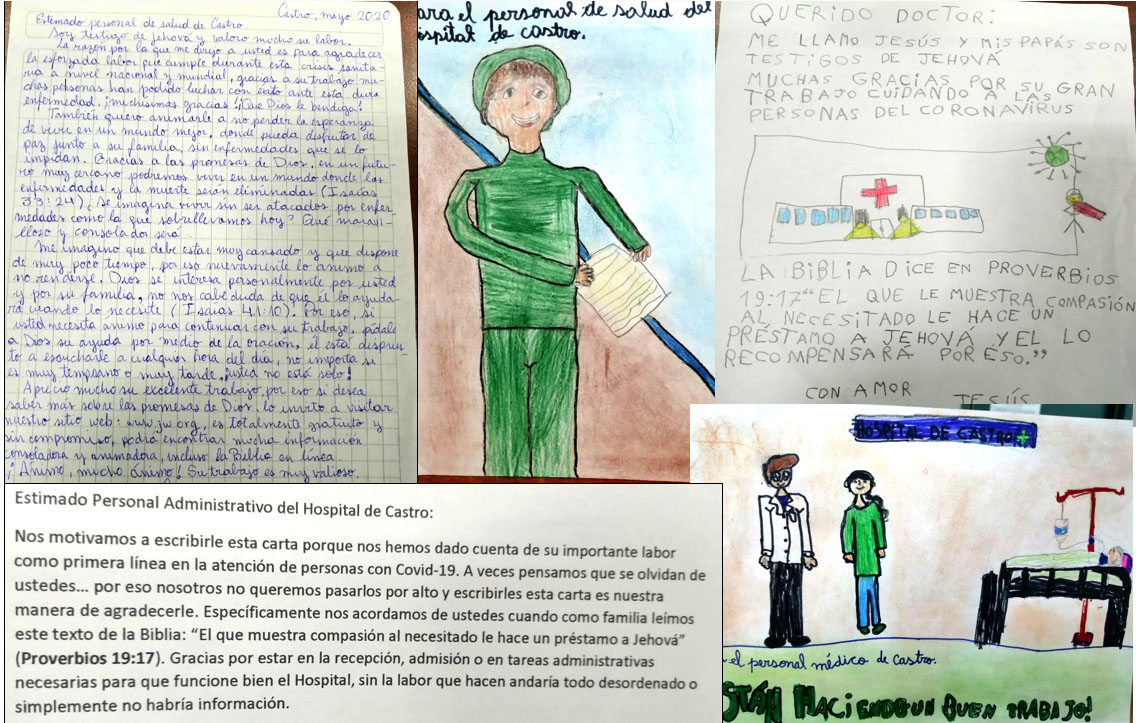 Castro, mayo 2020
Estimado personal de salud de Castro.
Soy testigo de Jehová y valoro mucho su labor.
La razón por la que me dirijo a usted es para agradecer
la esforzada labor que cumple durante esta crisis sanita-
ria a nivel nacional y mundial, gracias a su trabajo mu-
chas personas han podido luchar con éxito ante esta dura
enfermedad. ¡muchísimas gracias! ¡Que Dios le bendiga!
También quiero animarle a no perder la esperanza
de vivir en un mundo mejor, donde pueda disfrutar de
paz junto a su familia, sin enfermedades que se lo
impidan. Gracias a las promesas de Dios, en un futu-
ro muy cercano podremos vivir en un mundo donde las
enfermedades y la muerte serán eliminadas (Isaías
33:24). Se imagina vivir sin ser atacados por enfer-
medades como la que sobrellevamos hoy? Qué maravi-
lloso y consolador será
Me imagino que debe estar muy cansado y que dispone
de muy poco tiempo, por eso nuevamente lo animo a
no rendirse. Dios se interesa personalmente por usted
y por su familia, no nos cabe duda de que él lo ayuda-
rá cuando lo necesite (Isaías 41:10). Por eso, si
usted necesita ánimo para continuar con su trabajo, pídale
a Dios su ayuda por medio de la oración, él está dispues-
to a escucharle a cualquier hora del día, no importa si
es muy temprano o muy tarde, ¡usted no está solo!
Aprecio mucho su excelente trabajo, por eso si desea
saber más sobre las promesas de Dios, lo invito a visitar
nuestro sitio web: www.jw.org, es totalmente gratuito y
sin compromiso, podrá encontrar mucha información
consoladora y animadora, incluso la Biblia en línea.
¡Ánimo, mucho ánimo! Su trabajo es muy valioso.
ara el personal de salud del
ospital de castro.
QUERIDO DOCTOR:
ME LLAMO JESÚS Y MIS PAPÁS SON
TESTIGOS DE JEHOVÁ
MUCHAS GRACIAS POR SU GRAN
TRABAJO CUIDANDO A LAS
PERSONAS DEL CORONAVIRUS
LA BIBLIA DICE EN PROVERBIOS
19:17 "EL QUE LE MUESTRA COMPASIÓN
AL NECESITADO LE HACE UN
PRÉSTAMO A JEHOVÁ Y EL LO
RECOMPENSARÁ POR ESO."
CON AMOR
JESÚS
HOSPITAL DE CASTRO
el personal médico de Castro.
STÁN HACIENDO UN BUEN TRABAJO!
Estimado Personal Administrativo del Hospital de Castro:
Nos motivamos a escribirle esta carta porque nos hemos dado cuenta de su importante labor
como primera línea en la atención de personas con Covid-19. A veces pensamos que se olvidan de
ustedes... por eso nosotros no queremos pasarlos por alto y escribirles esta carta es nuestra
manera de agradecerle. Específicamente nos acordamos de ustedes cuando como familia leímos
este texto de la Biblia: "El que muestra compasión al necesitado le hace un préstamo a Jehová"
(Proverbios 19:17). Gracias por estar en la recepción, admisión o en tareas administrativas
necesarias para que funcione bien el Hospital, sin la labor que hacen andaría todo desordenado o
simplemente no habría información.